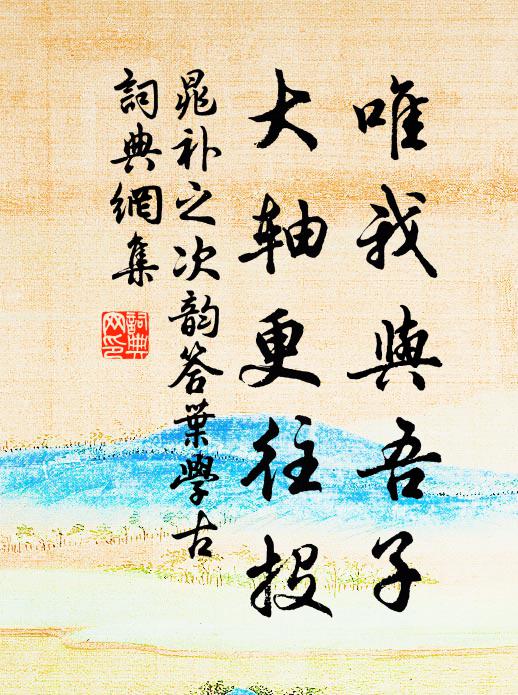 唯我與吾子
大轴更往投
晁补之次韵答葉學古
詞典網集
詞典网印